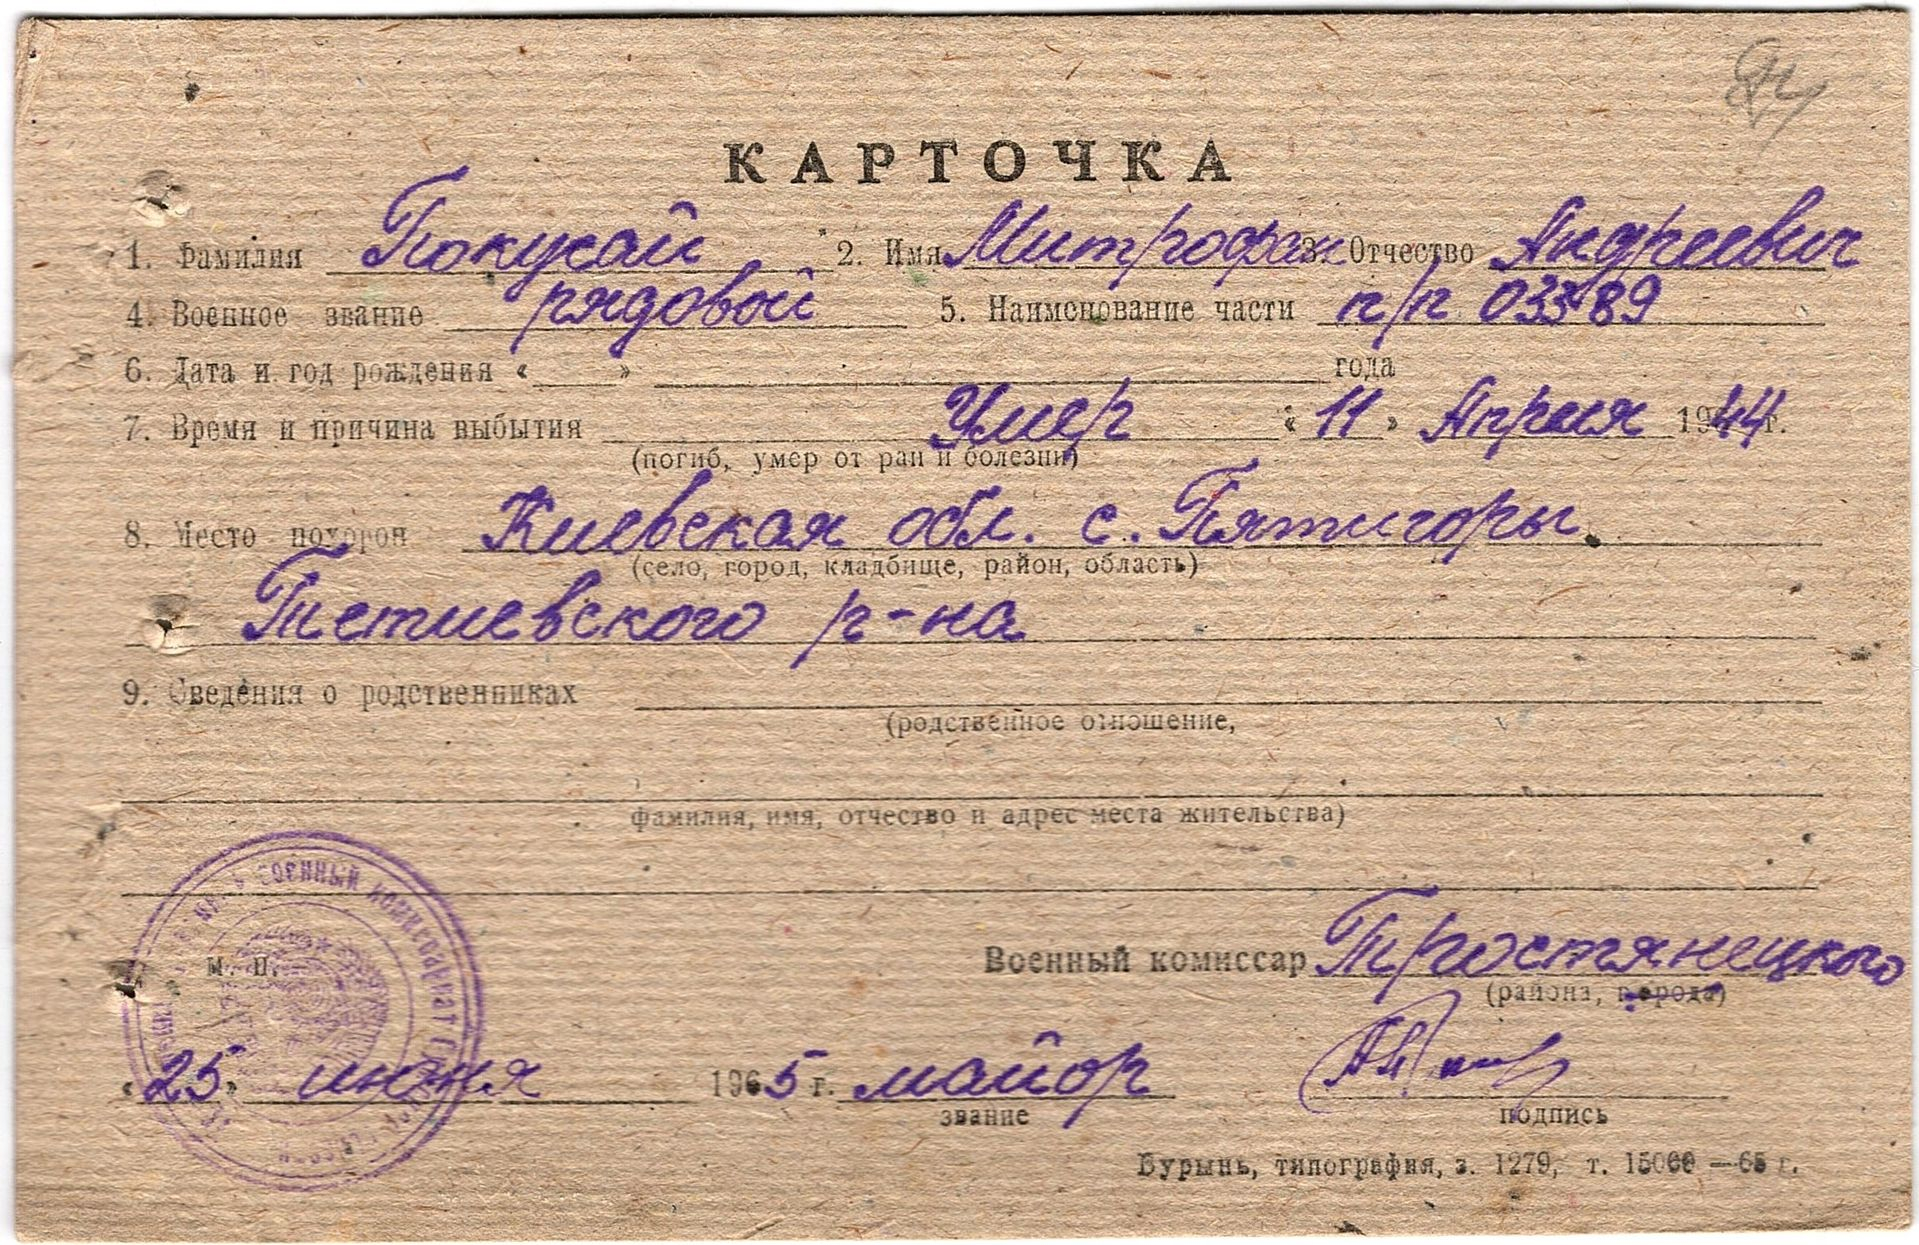 КАРТОЧКА
1. Фамилия Покусай 2. Имя Митрофан 3. Отчество Андреевич
4. Военное звание рядовой 5. Наименование части п/п 03389
6. Дата и год рождения « » года
7. Время и причина выбытия Умер «11» Апреля 1944 г.
(погиб, умер от ран и болезни)
8. Место похорон Киевская обл. с. Пятигоры
(село, город, кладбище, район, область)
Тетиевского р-на
9. Сведения о родственниках
(родственное отношение,
фамилия, имя, отчество и адрес места жительства)
военный комиссариат
М. П.
Военный комиссар Тростянецкого
(района, города)
«25» июня 1965 г. майор
звание подпись
Бурынь, типография, з. 1279, т. 15000 — 65 г.